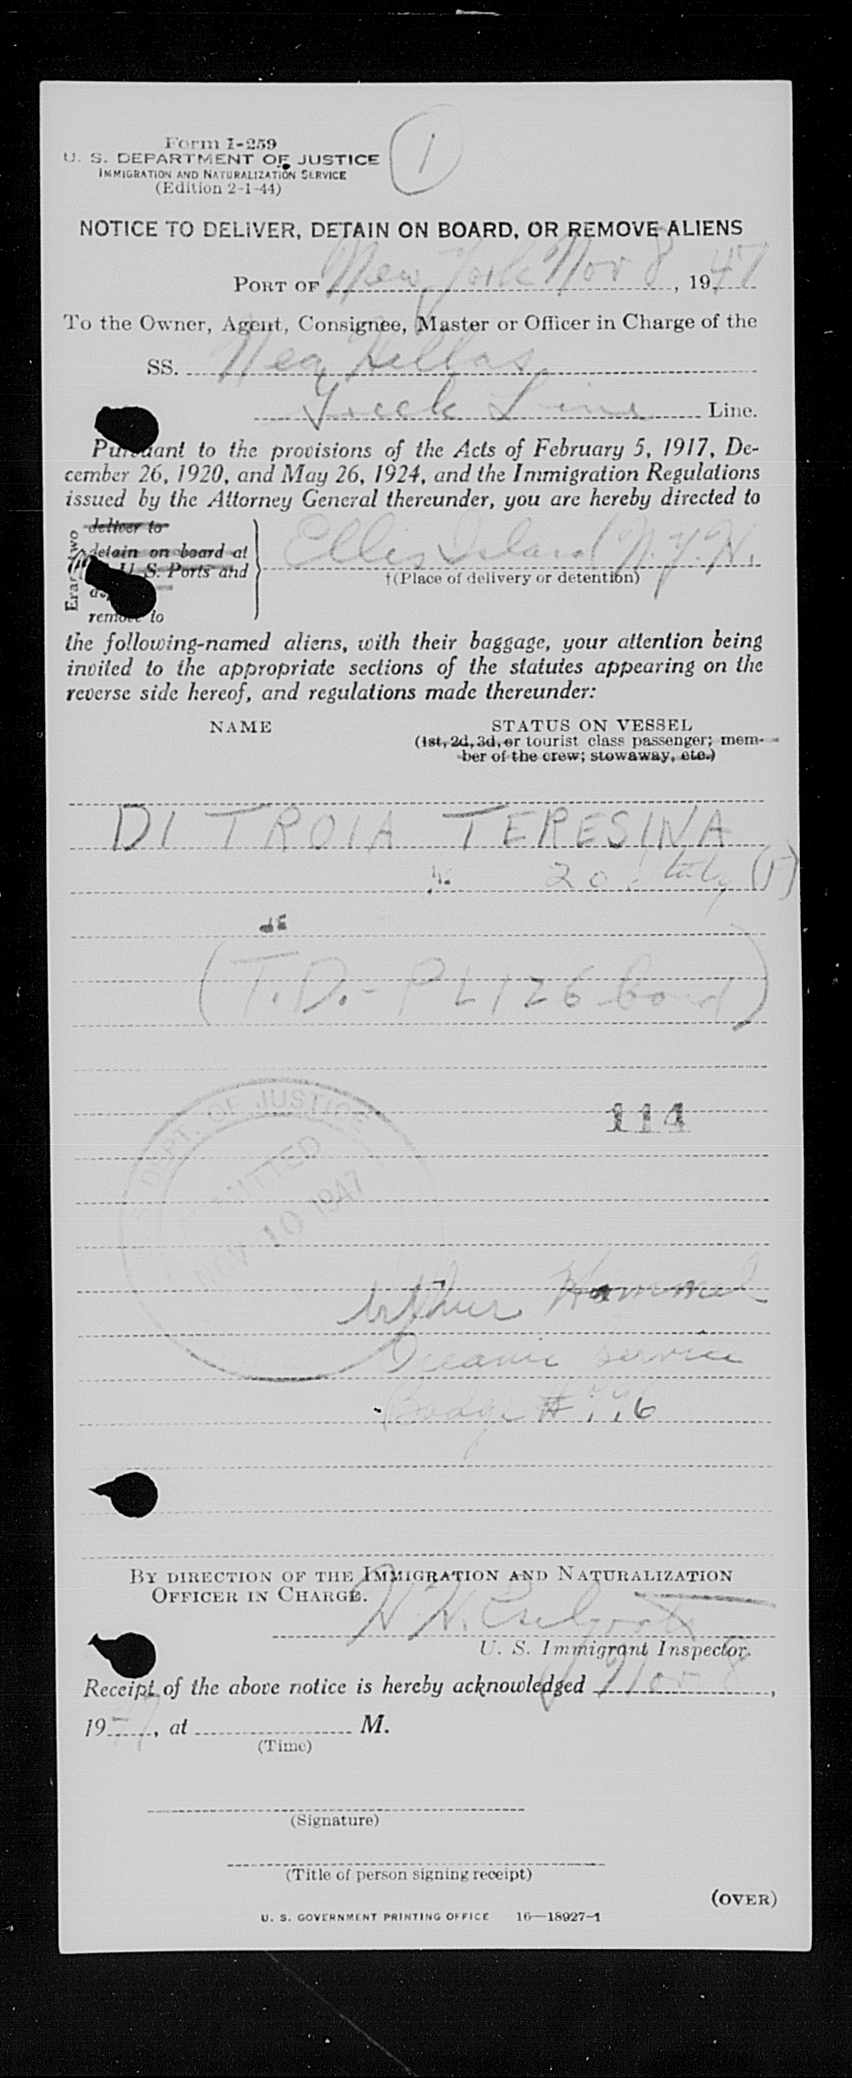 Form I-259
U. S. DEPARTMENT OF JUSTICE
IMMIGRATION AND NATURALIZATION SERVICE
(Edition 2-1-44)
1
NOTICE TO DELIVER, DETAIN ON BOARD, OR REMOVE ALIENS
PORT OF New York Nov 8, 1947
To the Owner, Agent, Consignee, Master or Officer in Charge of the
SS. Nea Hellas
Greek Line Line.
Pursuant to the provisions of the Acts of February 5, 1917, De-
cember 26, 1920, and May 26, 1924, and the Immigration Regulations
issued by the Attorney General thereunder, you are hereby directed to
deliver to
detain on board at
U. S. Ports and
remove to
Ellis Island N.Y.H.
†(Place of delivery or detention)
the following-named aliens, with their baggage, your attention being
invited to the appropriate sections of the statutes appearing on the
reverse side hereof, and regulations made thereunder:
NAME STATUS ON VESSEL
(1st, 2d, 3d, or tourist class passenger; mem-
ber of the crew; stowaway, etc.)
DI TROIA TERESINA
20 Italy
(T.D.- PL126 bond)
DEPT. OF JUSTICE
ADMITTED
NOV 10 1947
114
Arthur Hammel
Oceanic service
Badge #
By DIRECTION OF THE IMMIGRATION AND NATURALIZATION
OFFICER IN CHARGE.
U. S. Immigrant Inspector.
Receipt of the above notice is hereby acknowledged Nov 8,
1947, at M.
(Time)
(Signature)
(Title of person signing receipt)
(OVER)
U. S. GOVERNMENT PRINTING OFFICE 16—18927-1